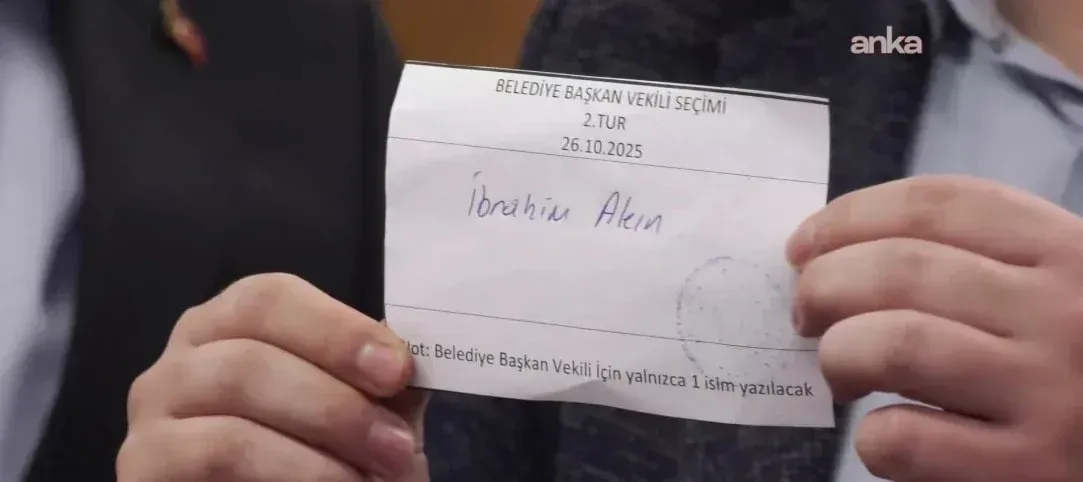 anka
BELEDİYE BAŞKAN VEKİLİ SEÇİMİ
2.TUR
26.10.2025
İbrahim Akın
Not: Belediye Başkan Vekili İçin yalnızca 1 isim yazılacak